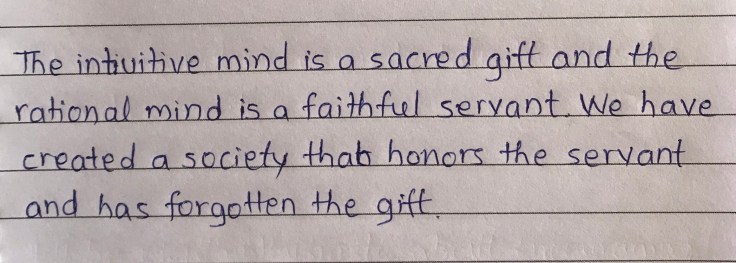 The intiuitive mind is a sacred gift and the
rational mind is a faithful servant. We have
created a society that honors the servant
and has forgotten the gift.